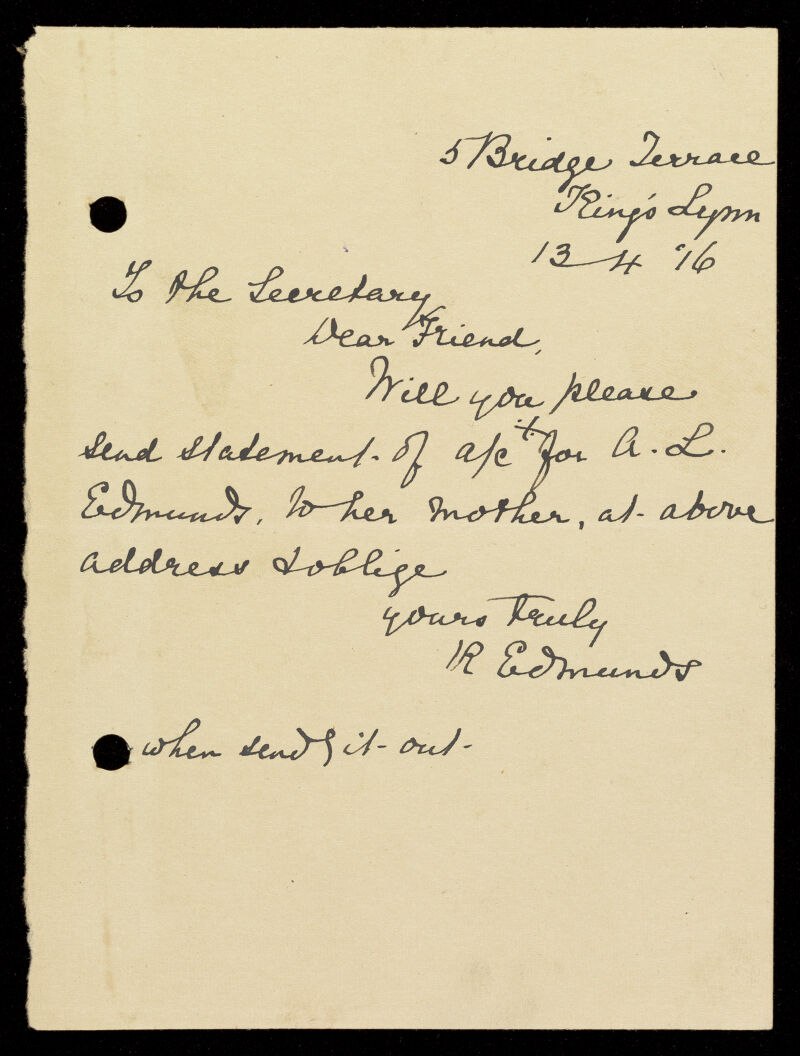 5 Bridge Terrace
King's Lynn
13 4 '16
To the Secretary
Dear Friend,
Will you please
send statement of a/ct for A. L.
Edmunds, to her mother, at above
address & oblige
yours truly
R Edmunds
when sendg it out.